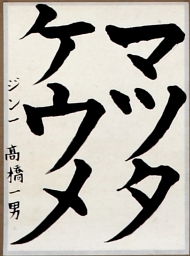 マツタ
ケウメ
ジン一 高橋一男